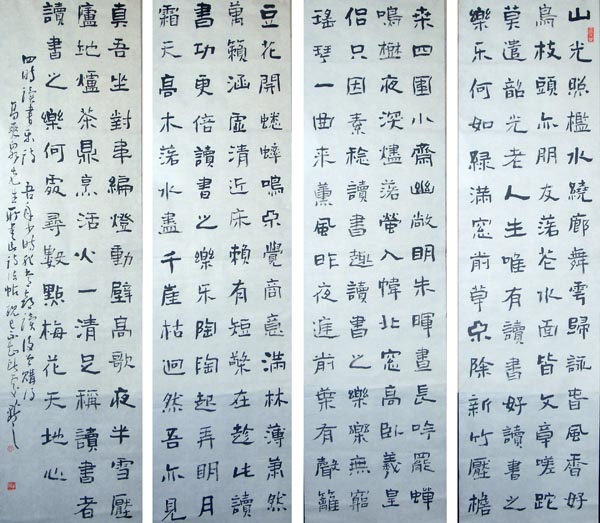 山光照檻水繞廊舞雩歸詠春風香好
鳥枝頭亦朋友落花水面皆文章蹉跎
莫遣韶光老人生唯有讀書好讀書之
樂乐何如緑滿窓前草不除新竹壓檐
桒四圍小齋幽敞明朱暉晝長吟罷蟬
鳴樹夜深燼落螢入幃北窓高臥羲皇
侶只因素稔讀書趣讀書之樂樂無窮
瑤琴一曲來薰風昨夜庭前葉有聲籬
豆花開蟋蟀鳴不覺商意滿林薄蕭然
萬籟涵虛清近床賴有短檠在趁此讀
書功更倍讀書之樂乐陶陶起弄明月
霜天高木落水盡千崖枯迥然吾亦見
真吾坐對韋編燈動壁高歌夜半雪壓
廬地爐茶鼎烹活火一清足稱讀書者
讀書之樂何處尋數點梅花天地心
四時讀書乐詩 吾年少時